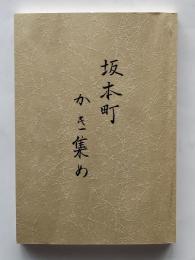 坂本町
かき集め